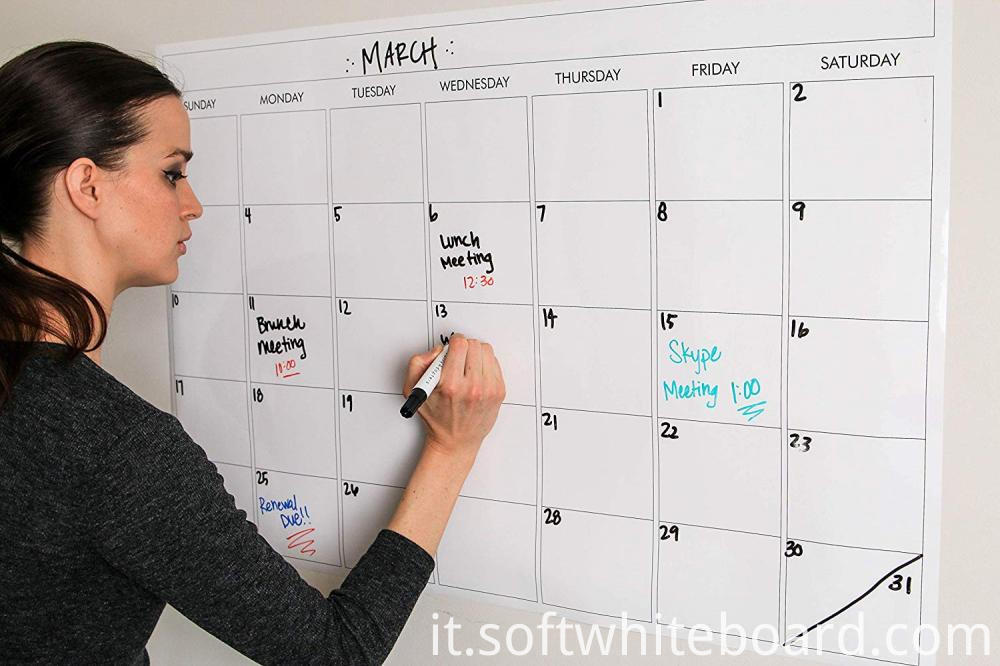 MARCH
SUNDAY MONDAY TUESDAY WEDNESDAY THURSDAY FRIDAY SATURDAY
1 2
4 5 6 7 8 9
Lunch
Meeting
12:30
10 11 12 13 14 15 16
Brunch
Meeting
11:00
Skype
Meeting 1:00
17 18 19 21 22 23
25 26 28 29 30 31
Renewal
Due!!
it.softwhiteboard.com